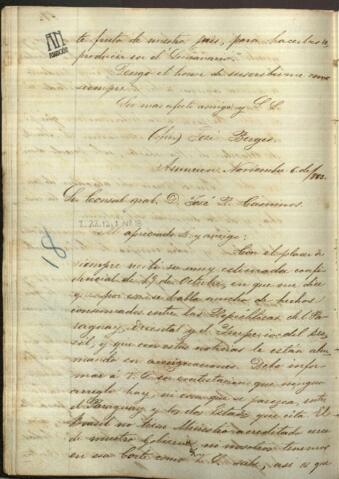 te fruta de nuestro pais, para hacerlas re
producir en el Semanario.
Tengo el honor de suscribirme como
siempre.
Su mas afecto amigo y S. S.
José Berges.
Asuncion, Noviembre 6 de 1862.
Sr Consul D. José R. Caminos.
I.22,12,1 Nº 18
18
Mi apreciado Sr y amigo:
Con el placer de
siempre recibi su muy estimada confi
dencial de 17 de Octubre, en que me dice
que por casi se habla mucho de hechos
consumados entre las Republicas del Pa
raguay, Oriental y el Imperio del Bra
sil, y que con estas noticias le están
en Debo infor
mar á V. S. en contestacion que ningun
arreglo hay, ni cosa que se parezca, entre
el Paraguay y los dos Estados que cita. El
Brasil no tiene Ministro acreditado cerca
de nuestro Gobierno, ni nosotros tenemos
en esa Corte como V. S. sabe, asi es que